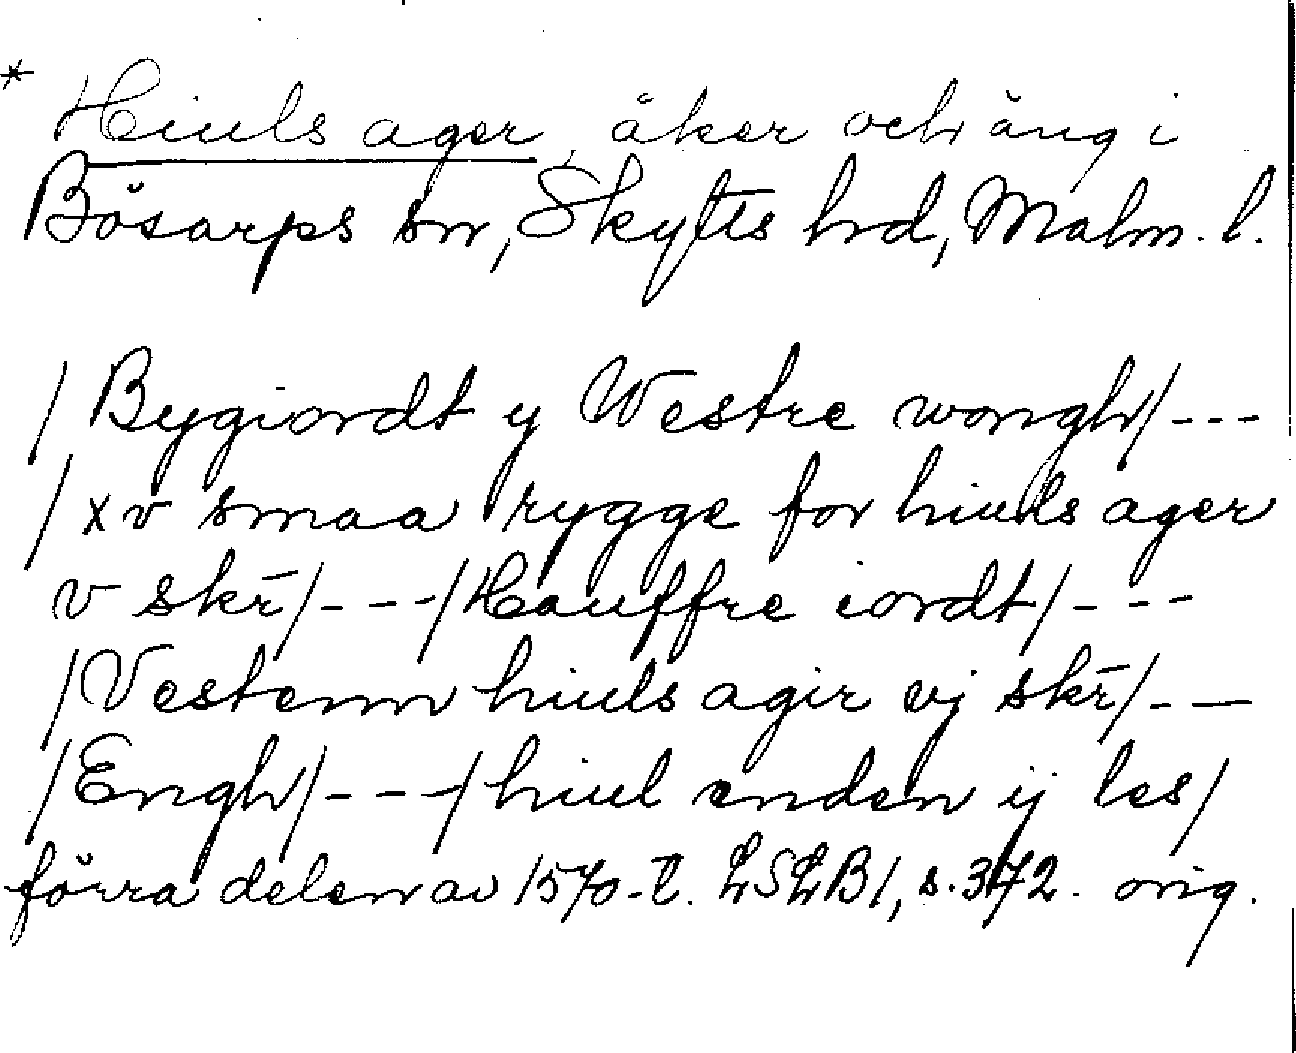 * Hiuls ager, åker och äng i
Bösarps sn, Skytts hd, Malm. l.
/ Bygiordt y Westre wongh/---
/ xv smaa rygge for hiuls ager
v skr̄/---/Hauffre iordt/---
/Vestenn hiuls agir vj skr̄/---
/Engh/---/hiul enden ij les/
förra delen av 1570-t. LSLB 1, s. 372. orig.